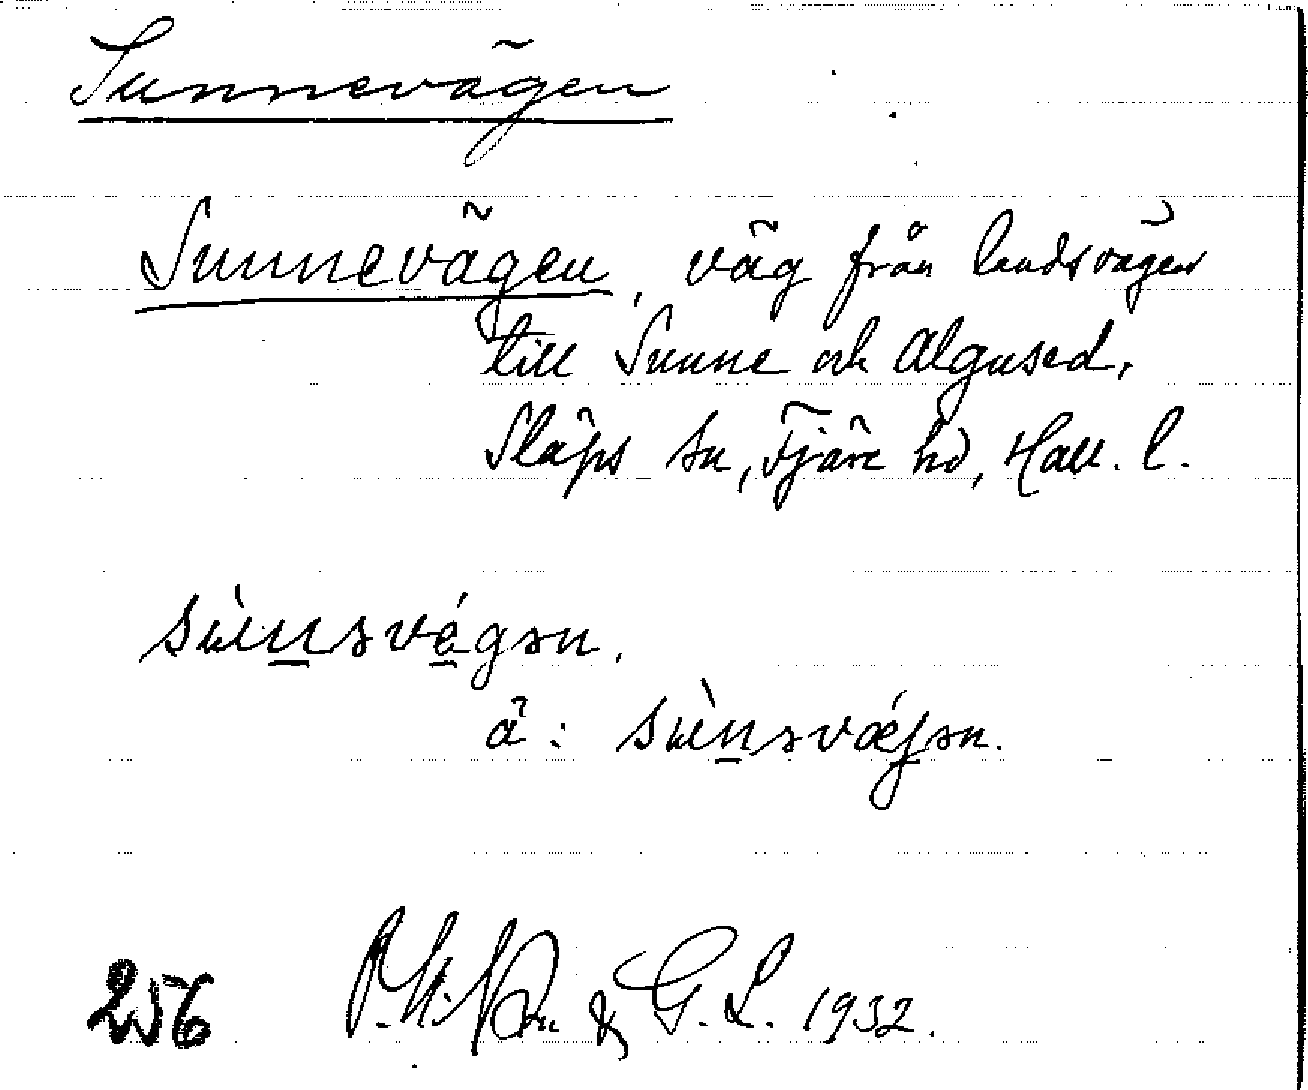 Sunnevägen
Sunnevägen, väg från landsvägen
till Sunne och Algused,
Släps sn, Fjäre hd, Hall. l.
sùnəvégən.
ä: sùnəvǽgən.
256 & G. L. 1932.